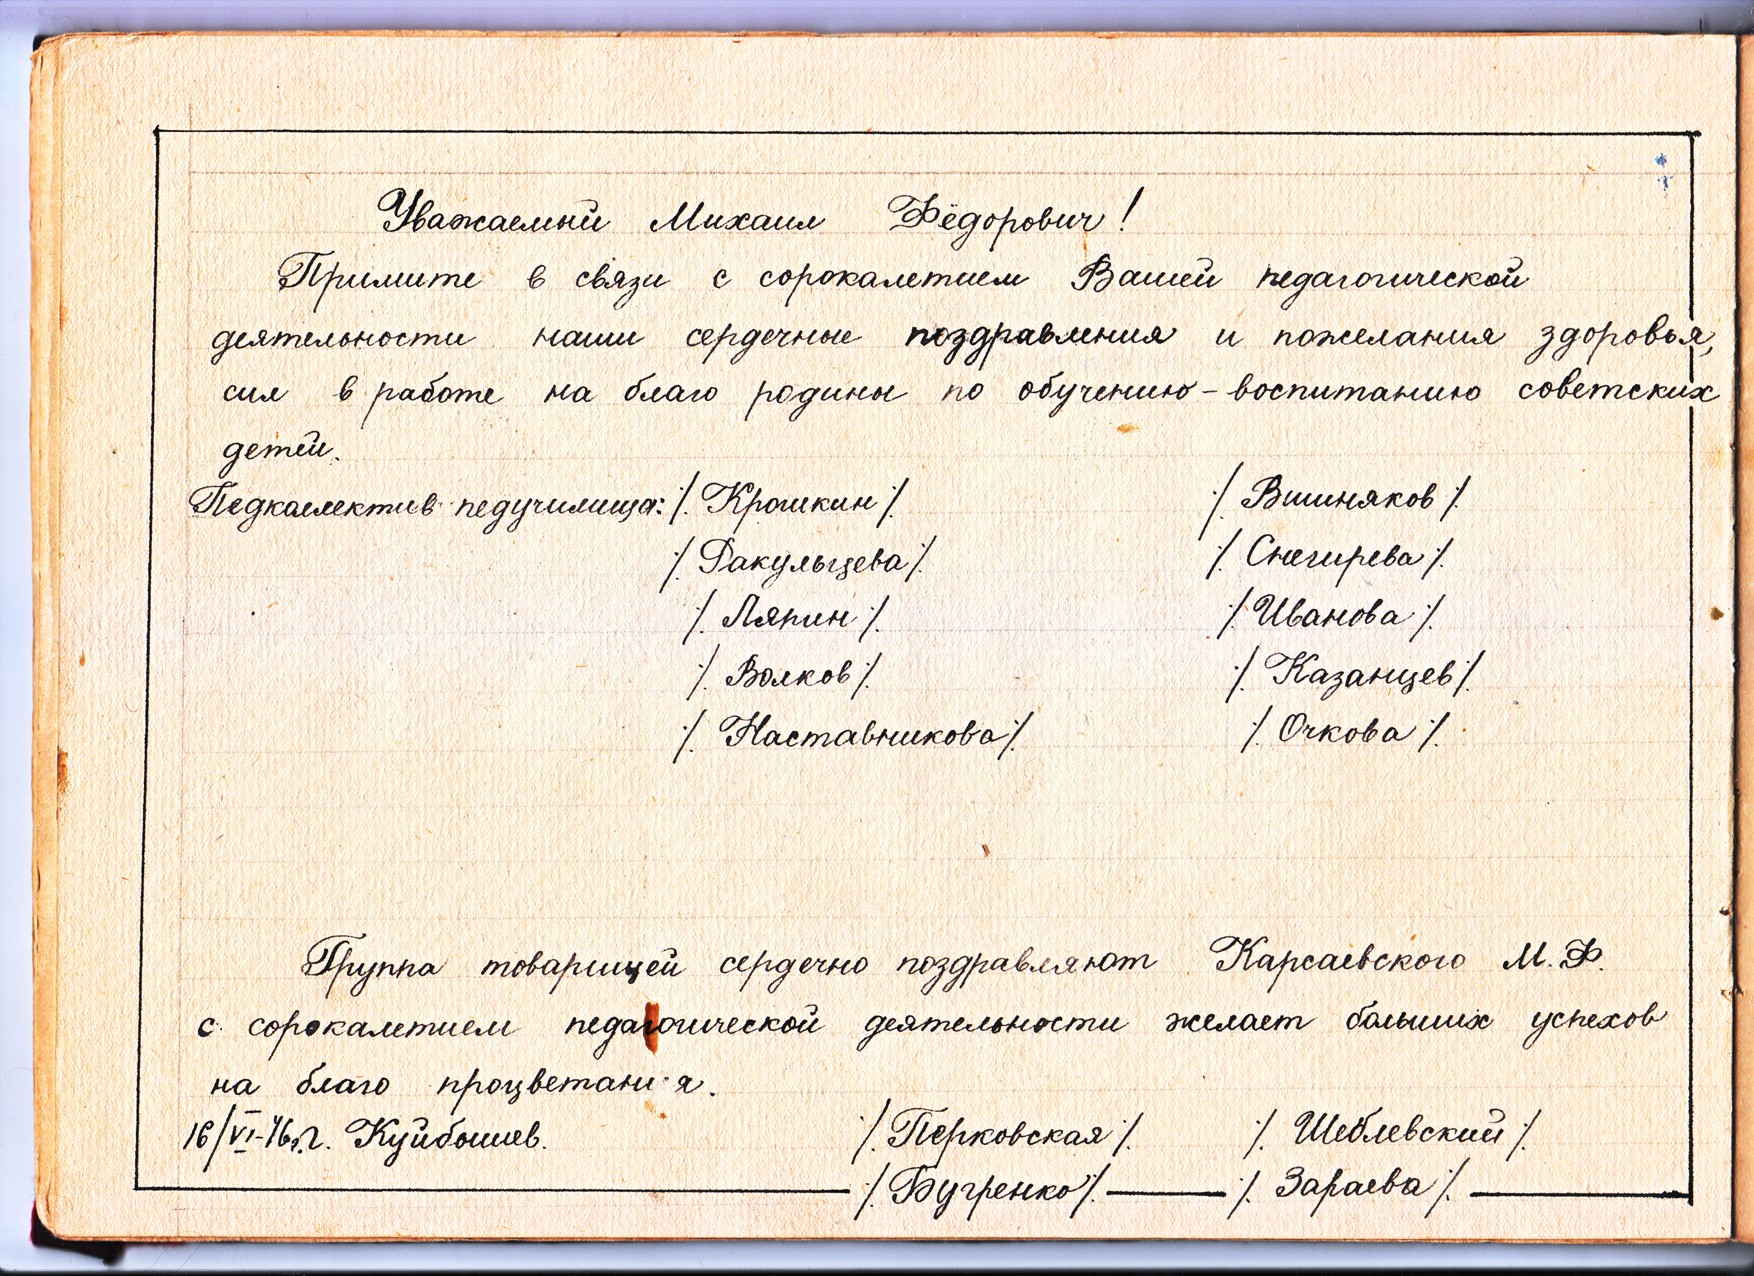 Уважаемый Михаил Фёдорович!
Примите в связи с сорокалетием Вашей педагогической
деятельности наши сердечные поздравления и пожелания здоровья,
сил в работе на благо родины по обучению-воспитанию советских
детей.
Педколлектив педучилища: /Крошкин/ /Вишняков/
/Факульцева/ /Снегирева/
/Ляпин/ /Иванова/
/Волков/ /Казанцев/
/Наставникова/ /Очкова/
Группа товарищей сердечно поздравляют Карсаевского М.Ф.
с сорокалетием педагогической деятельности желает больших успехов
на благо процветания.
16/VI-46.г. Куйбышев. /Перковская/ /Шеблевский/
/Бугренко/ /Зараева/